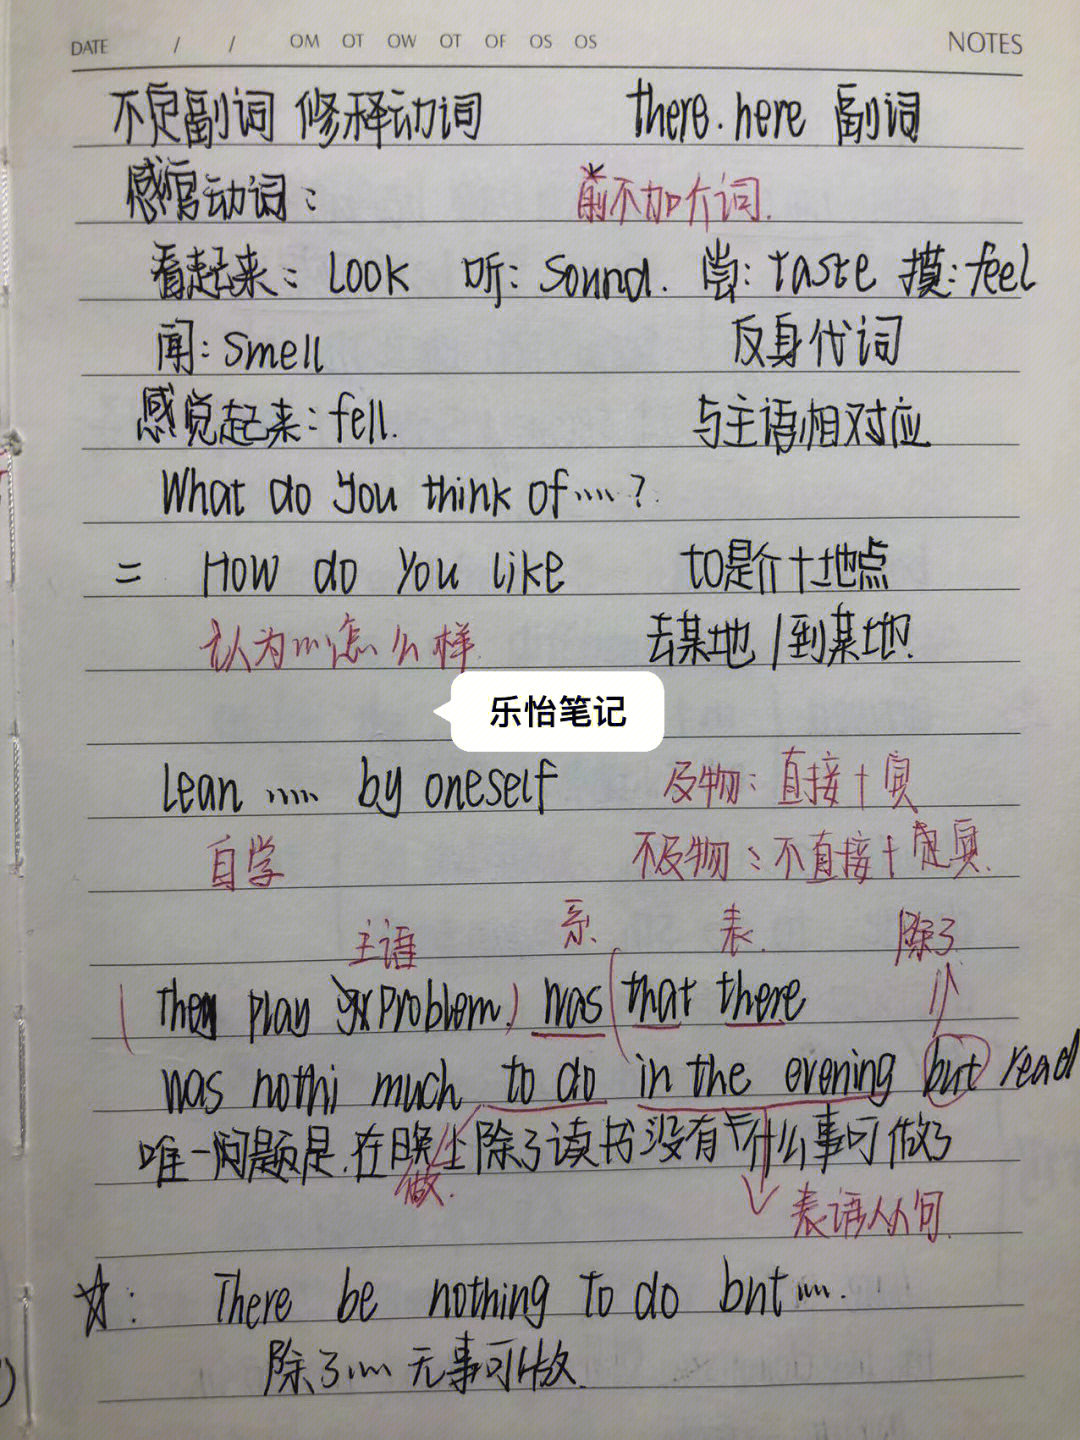 DATE / / OM OT OW OT OF OS OS NOTES
不定副词 修释动词 there.here 副词
感官动词: 前不加介词.
看起来: Look 听: Sound. 尝: taste 摸: feel
闻: Smell 反身代词
感觉起来: fell. 与主语相对应
What do you think of ..... ?
= How do you like to是介+地点
认为...怎么样. 去某地/到某地?
乐怡笔记
Lean ..... by oneself 及物: 直接+宾
自学 不及物: 不直接+宾.
主语 系. 表. 除了.
play problem.) was (that there
was nothi much to do in the evening but read
唯一问题是.在晚上除了读书没有什么事可做了
做. 表语从句.
☆: There be nothing to do but .....
除了..... 无事可做.